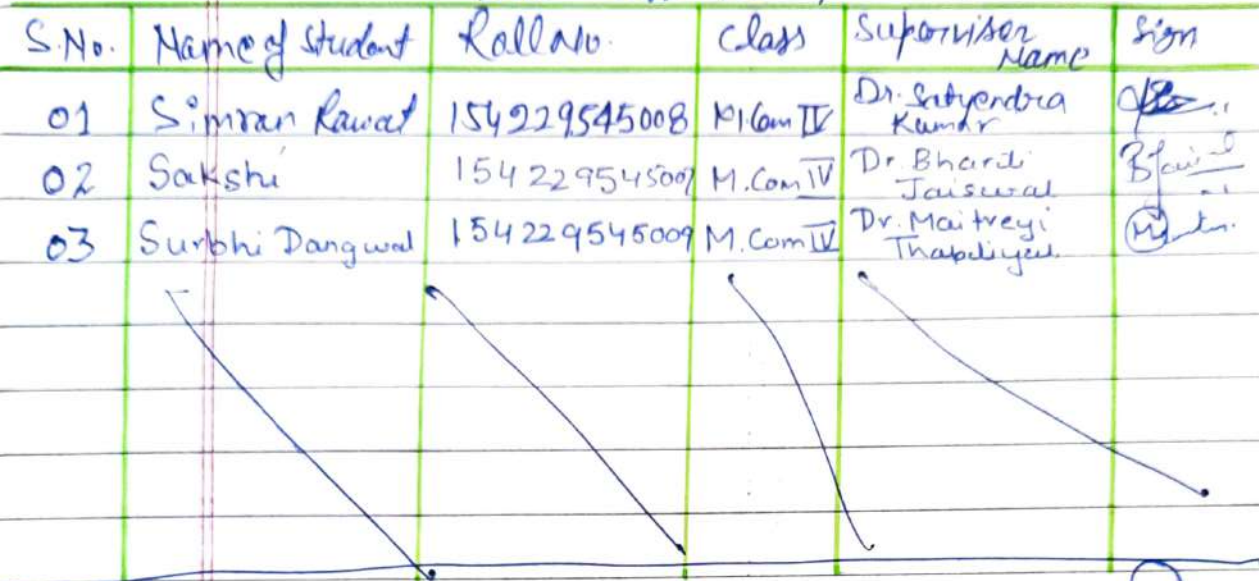 S.No. Name of Student Roll No. Class Supervisor Name Sign
01 Simran Rawat 154229545008 M.Com IV Dr. Satyendra Kumar
02 Sakshi 154229545007 M.Com IV Dr. Bharti Jaiswal
03 Surbhi Dangwal 154229545009 M.Com IV Dr. Maitreyi Thapliyal